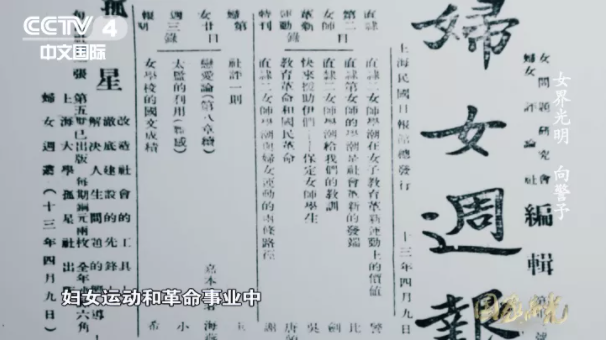 CCTV 4
中文国际
女界光明 向警予
婦女週報
女問題研究會
婦女評論社
編輯
上海民國日報館總發行
十三年四月九日
直隸二女師學潮在女子教育革新運動上的價值
直隸第二女師的學潮是社會革新的發端
直隸二女師學潮給我們的教訓
快來援助伊們——保定女師學生
教育革命和國民革命
直隸二女師學潮與婦女運動的兩條路徑
社評一則
戀愛論(第八章續)
太監的利用
女學校的國文成績
孤星
改造社會的工具
徹底建設的先鋒
解決人生問題的導
第五號已出版
每期銅元兩枚
全年大洋六角
上海大學孤星社出
婦女週報(十三年四月九日)
妇女运动和革命事业中
国家记忆